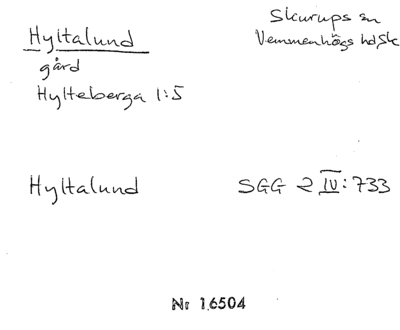 Hyltalund
Skurups sn
Vemmenhögs hd, Sk
gård
Hylteberga 1:5
Hyltalund
SGG 2 IV: 733
Nr 16504